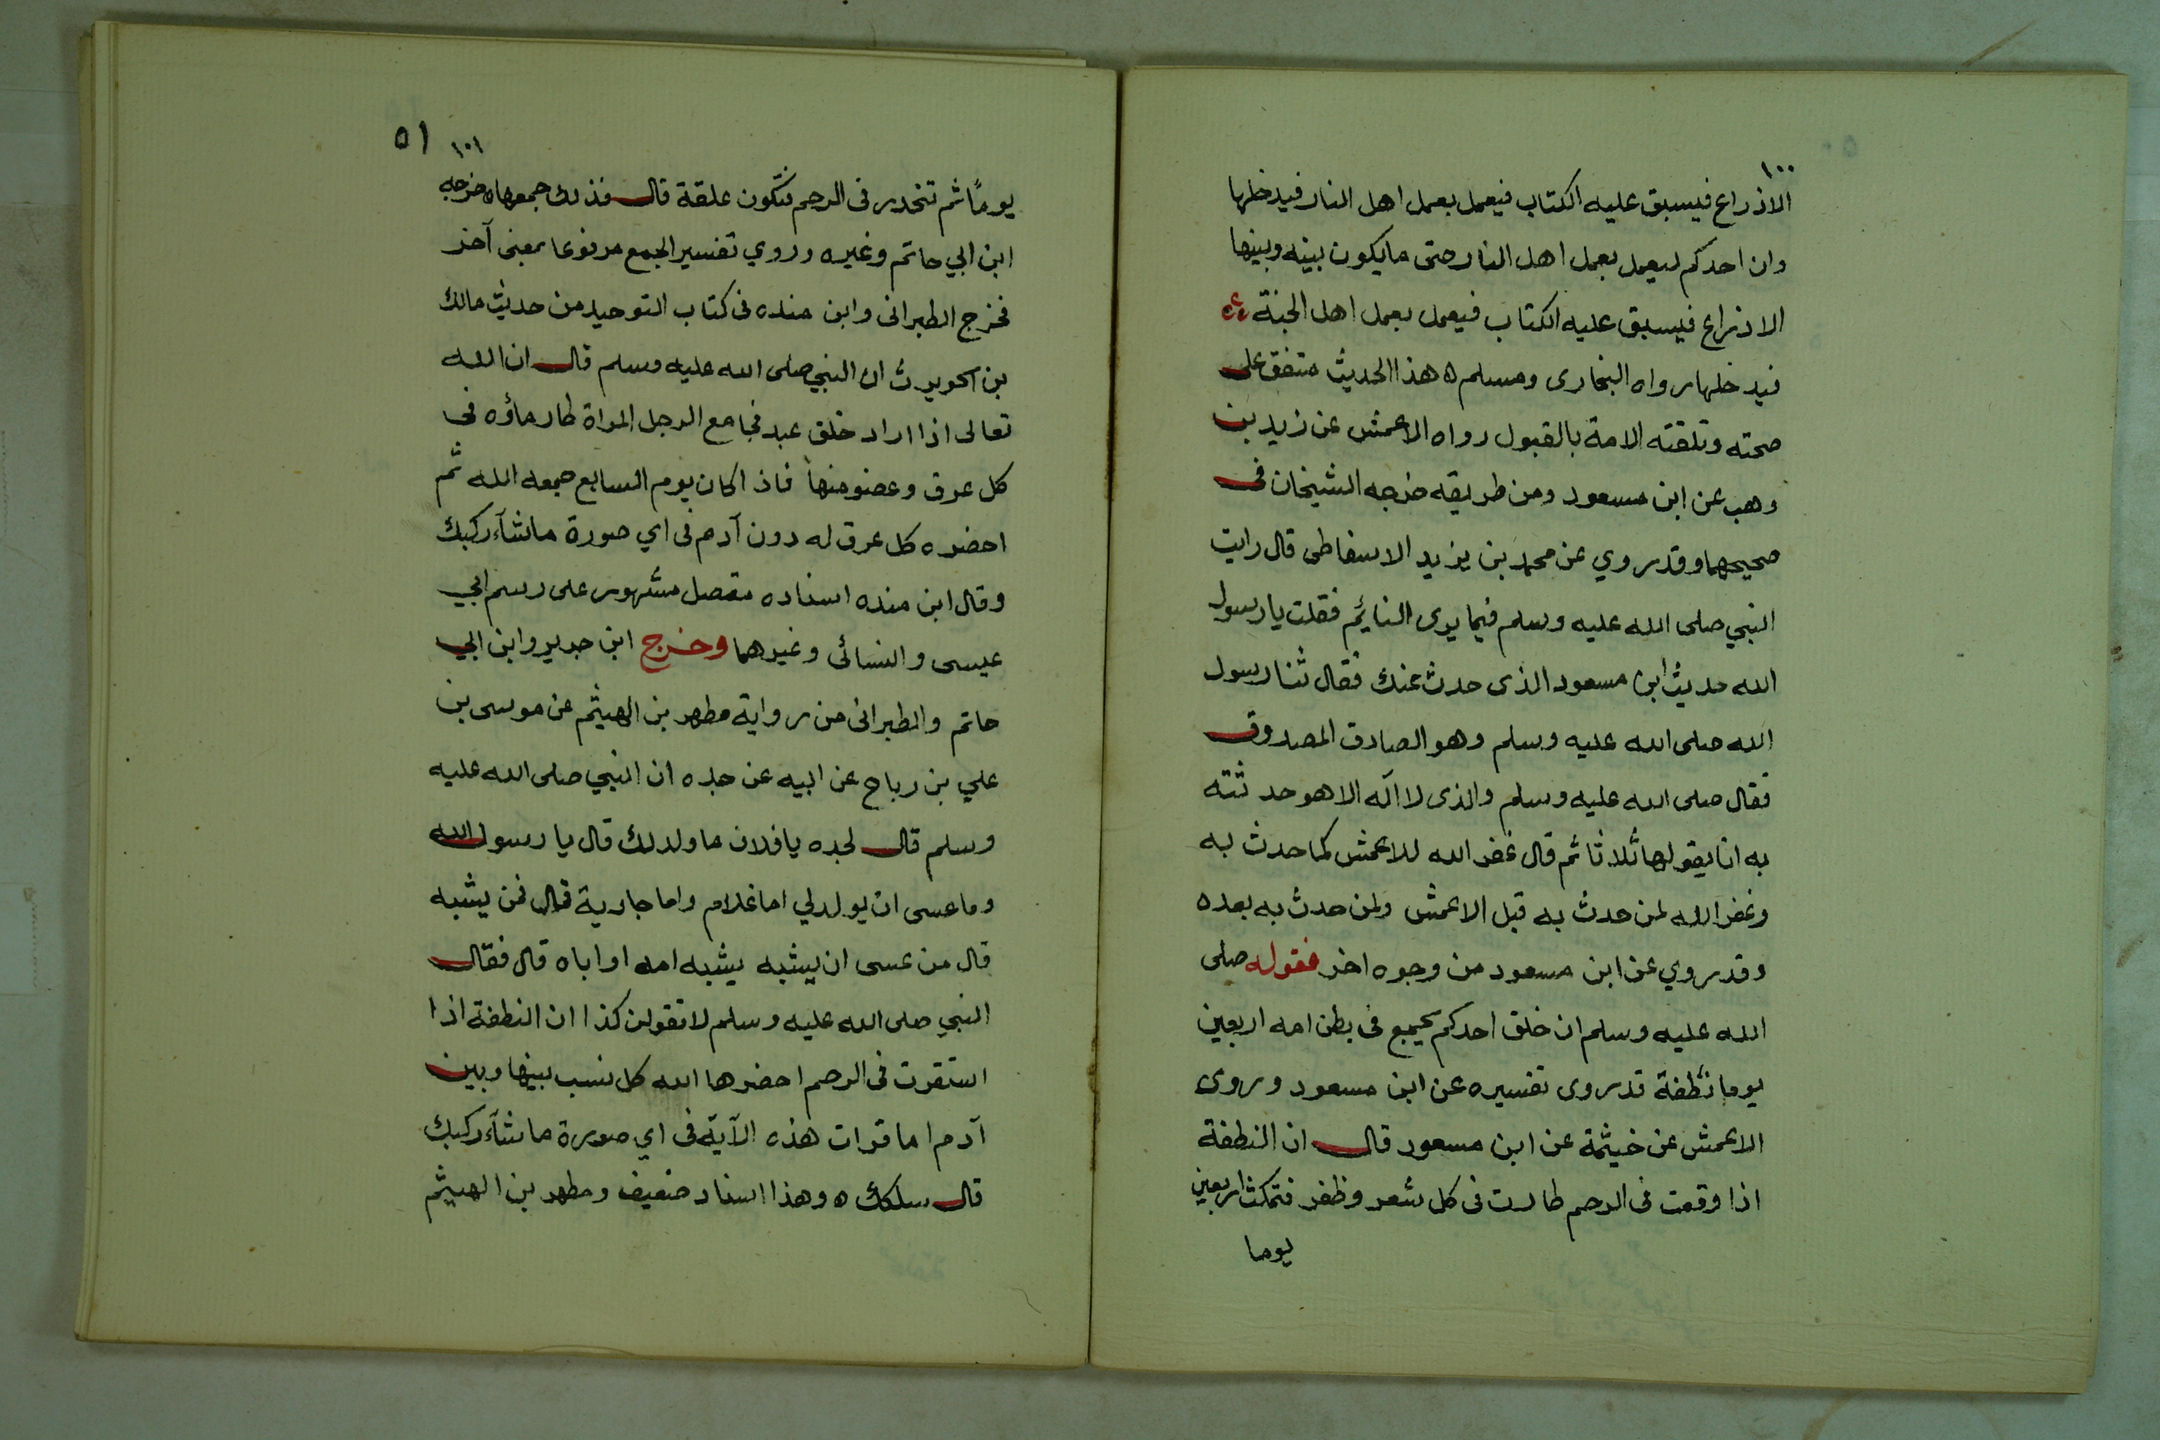 ١٠٠
الاذراع فيسبق عليه الكتاب فيعمل بعمل اهل النار فيدخلها
وان احدكم ليعمل بعمل اهل النار حتى مايكون بينه وبينها
الاذراع فيسبق عليه الكتاب فيعمل بعمل اهل الجنة
فيدخلها رواه البخارى ومسلم ه هذا الحديث متفق على
صحته وتلقته الامة بالقبول رواه الاعمش عن زيد بن
وهب عن ابن مسعود ومن طريقه خرجه الشيخان فى
صحيحهما وقد روي عن محمد بن يزيد الاسفاطى قال رايت
النبي صلى الله عليه وسلم فيما يرى النائم فقلت يا رسول
الله حديث ابن مسعود الذى حدث عنك فقال ثنا رسول
الله صلى الله عليه وسلم وهو الصادق المصدوق
فقال صلى الله عليه وسلم والذى لا اله الا هو حدثته
به انا يقولها ثلاثا ثم قال غفر الله للاعمش كما حدث به
وغفر الله لمن حدث به قبل الاعمش ولمن حدث به بعده
وقد روي عن ابن مسعود من وجوه اخر فقوله صلى
الله عليه وسلم ان خلق احدكم يجمع فى بطن امه اربعين
يوما نطفة قد روى تفسيره عن ابن مسعود وروى
الاعمش عن خيثمة عن ابن مسعود قال ان النطفة
اذا وقعت فى الرحم طارت فى كل شعر وظفر فتمكث اربعين
يوما
٥١ ١٠١
يومًا ثم تنحدر فى الرحم فتكون علقة قال فذلك جمعها ه خرجه
ابن ابي حاتم وغيره وروي تفسير الجمع مرفوعا بمعنى آخر
فخرج الطبرانى وابن منده فى كتاب التوحيد من حديث مالك
بن الحويرث ان النبي صلى الله عليه وسلم قال ان الله
تعالى اذا اراد خلق عبد فجامع الرجل المراة طار ماؤه فى
كل عرق وعضو منها فاذا كان يوم السابع جمعه الله ثم
احضره كل عرق له دون آدم فى اي صورة ماشآء ركبك
وقال ابن منده اسناده متصل مشهور على رسم ابي
عيسى والنسائى وغيرهما وخرج ابن جرير وابن ابي
حاتم والطبرانى من رواية مطهر بن الهيثم عن موسى بن
علي بن رباح عن ابيه عن جده ان النبي صلى الله عليه
وسلم قال لجده يا فلان ما ولد لك قال يا رسول الله
وما عسى ان يولد لي اما غلام واما جارية قال فمن يشبه
قال من عسى ان يشبه يشبه امه او اباه قال فقال
النبي صلى الله عليه وسلم لا تقولن كذا ان النطفة اذا
استقرت فى الرحم احضرها الله كل نسب بينها وبين
آدم اما قرات هذه الآية فى اي صورة ماشآء ركبك
قال سلكك ه وهذا اسناد ضعيف ومطهر بن الهيثم